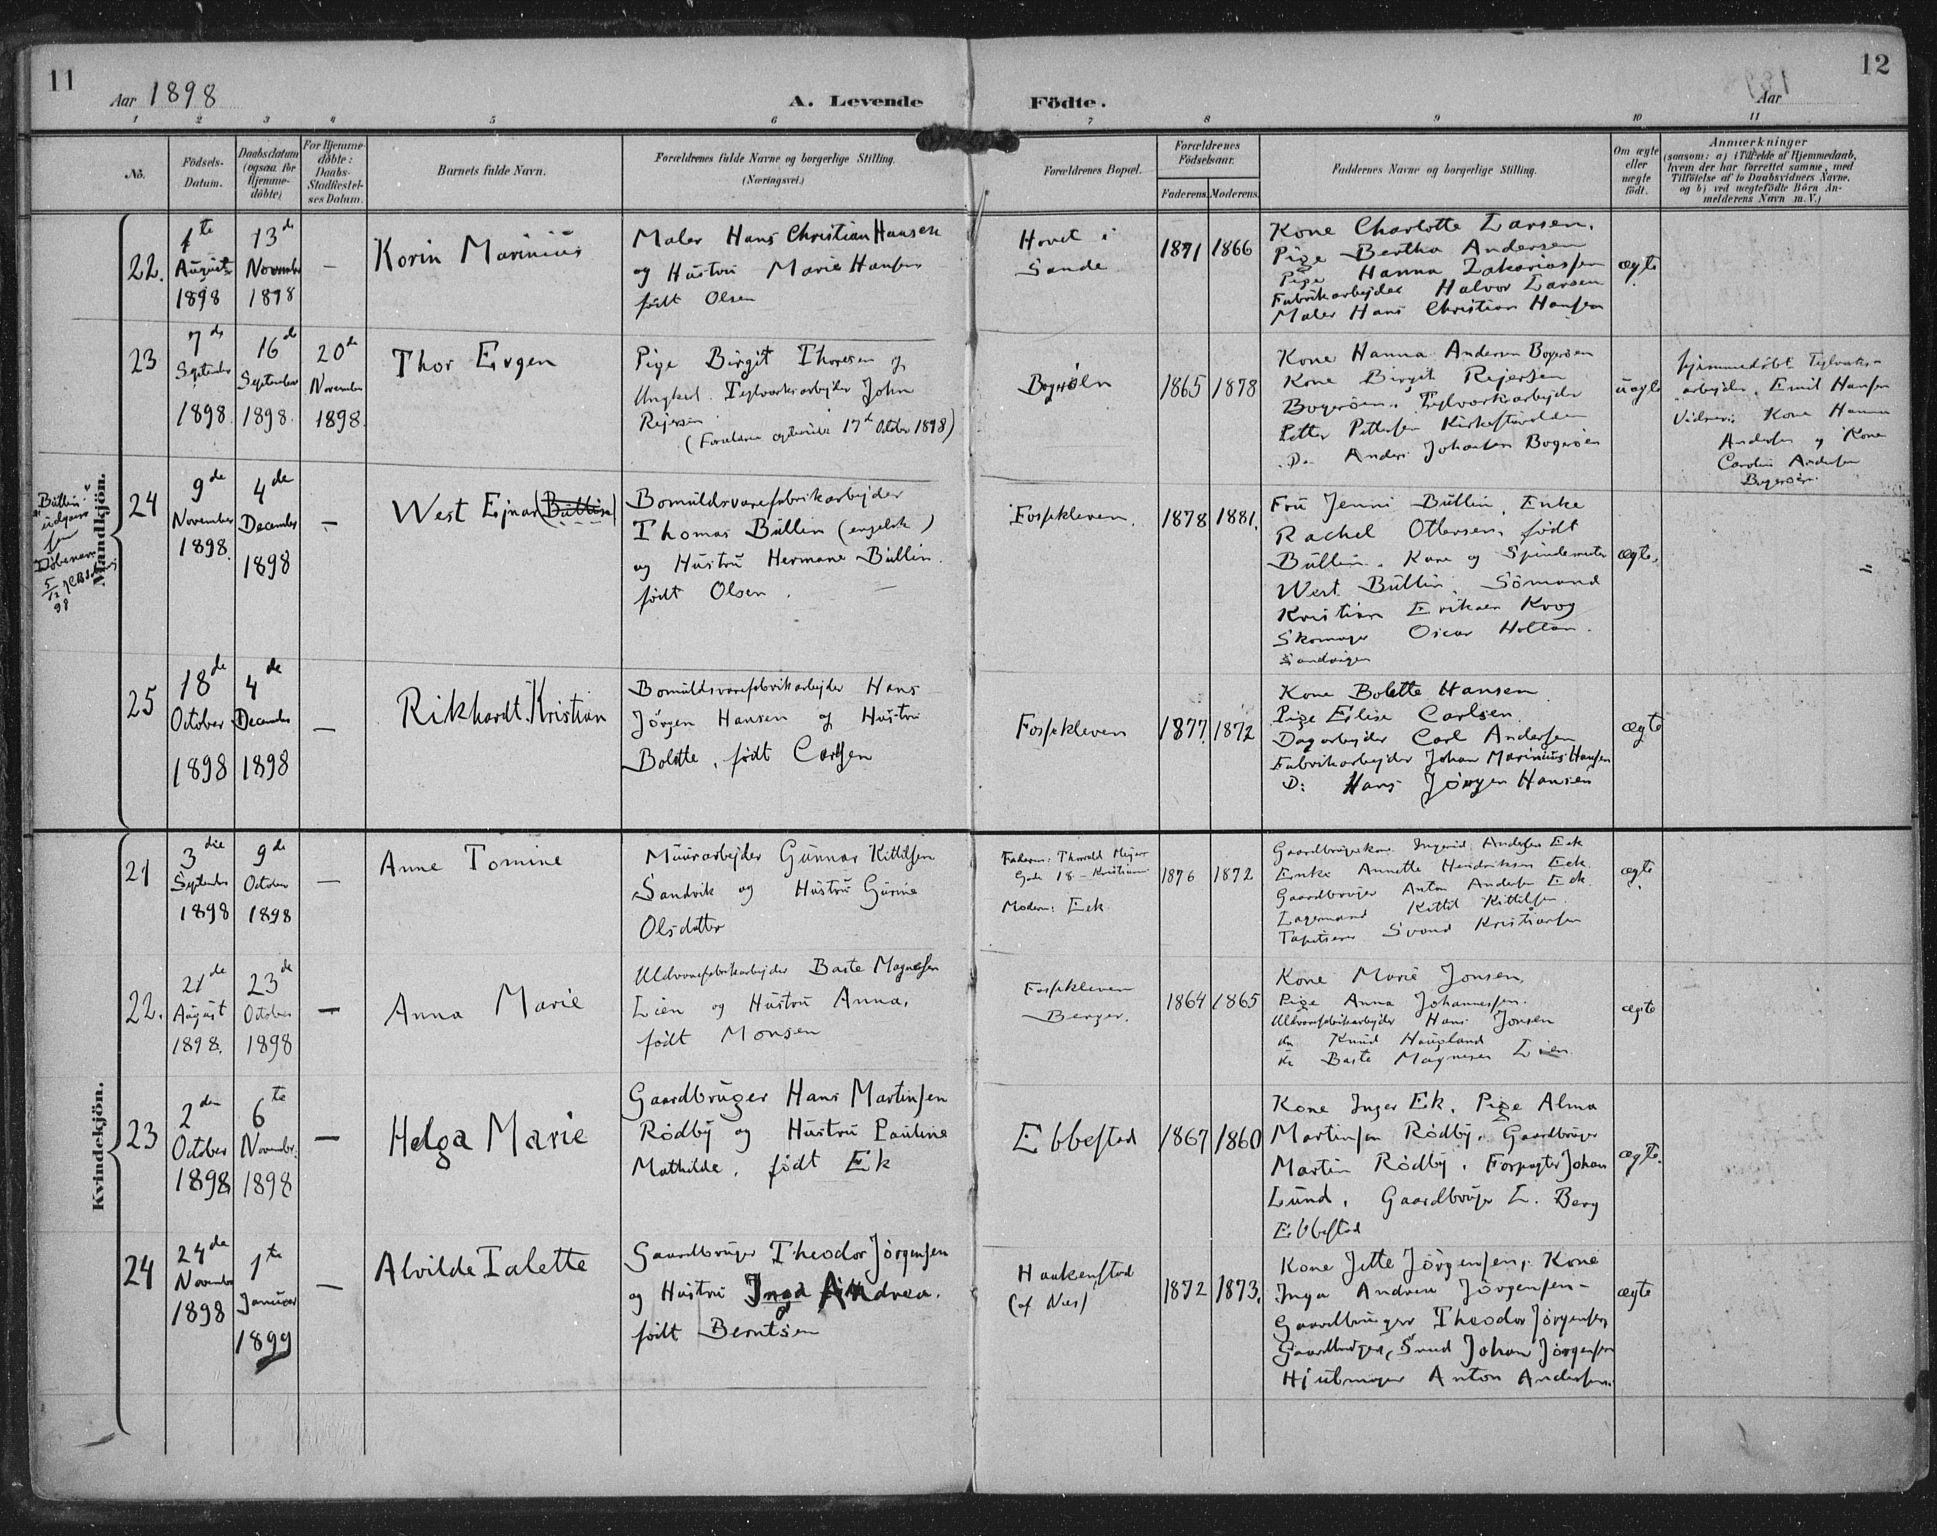 11
Aar 1898
A. Levende
Födte.
Aar
12
1 2 3 4 5 6 7 8 9 10 11
No.
Födsels-
Datum.
Daabsdatum
(ogsaa for
Hjemme-
døbte)
For Hjemme-
døbte:
Daabs-
Stadfæstel-
ses Datum.
Barnets fulde Navn.
Forældrenes fulde Navne og borgerlige Stilling.
(Næringsvei.)
Forældrenes Bopæl.
Forældrenes
Födselsaar.
Faderens. Moderens.
Faddernes Navne og borgerlige Stilling.
Om ægte
eller
uægte
født.
Anmærkninger
(saasom: a) i Tilfælde af Hjemmedaab,
hvem der har forrettet samme, med
Tilföielse af to Daabsvidners Navne,
og b) ved uægtefödte Börn An-
melderens Navn m. V.)
Mandkjön.
22.
1te
August
1898
13de
November
1898
—
Korin Marinius
Maler Hans Christian Hansen
og Hustru Marie Hansen
født Olsen
Hovet i
Sande
1871 1866
Kone Charlotte Larsen.
Pige Bertha Andersen
Pige Hanna Zakariassen
Fabrikarbejder Halvor Larsen
Maler Hans Christian Hansen
ægte
23
7de
September
1898
16de
September
1898.
20de
November
1898.
Thor Evgen
Pige Birgit Thoresen og
Ungkarl Teglværksarbejder John
Rejersen
(Forældrene 17de October 1898)
Bogerøen
1865 1878
Kone Hanna Andersen Bogerøen
Kone Birgit Rejersen
Bogerøen. Teglværksarbejder
Petter Pettersen
D. Anders Johansen Bogerøen
uægte
hjemmedøbt Teglværks-
arbejder Emil Hansen
Kone Hanna
Andersen og Kone
Caroline Andersen
Bogerøen.
Büllin
udgaar
som
Døbenavn
5/12 98
24
9de
November
1898.
4de
December
1898
—
West Ejnar (Büllin)
Bomuldsvarefabrikarbejder
Thomas Büllin (engelsk)
og Hustru Hermane Büllin.
født Olsen.
Fossekleven.
1878 1881.
Fru Jenni Büllin, Enke
Rachel Ottersen, født
Büllin. Kone og Spindemester
West Büllin, Sömand
Kristian Eriksen Krog
Skomager Oscar Holtan.
Sandvigen
ægte.
25
18de
October
1898
4de
December
1898
—
Rikhardt Kristian
Bomuldsvarefabrikarbejder Hans
Jörgen Hansen og Hustru
Bolette, født Carlsen
Fossekleven
1877. 1872
Kone Bolette Hansen
Pige Elise Carlsen
Dagarbejder Carl Andersen
Fabrikarbejder Johan Marinius Hansen
D: Hans Jörgen Hansen
ægte
Kvindekjön.
21
3die
September
1898
9de
October
1898
—
Anne Tomine
Murarbejder Gunnar Kittilsen
Sandvik og Hustru Gurine
Olsdatter
Faderen: Thorvald Meyers
Gade 18 – Kristiania
Moderen: Eek
1876 1872
Gaardbrugerkone Ingerid Andersen Eek
Enke Annette Hendriksen Eek.
Gaardbruger Anton Andersen Eek.
Lagermand Kittil Kittilsen.
Tapetserer Svend Kristiansen
ægte
22.
21de
August
1898.
23de
October
1898
—
Anna Marie
Uldvarefabrikarbejder Baste Magnesen
Lien og Hustru Anna,
født Monsen
Fossekleven
Berger.
1864 1865
Kone Marie Jonsen,
Pige Anna Johannessen.
Uldvarefabrikarbejder Hans Jonsen
do Knud Haugland
do Baste Magnesen Lien
ægte
23
2den
October
1898
6te
November.
1898
—
Helga Marie
Gaardbruger Hans Martinsen
Rødby og Hustru Pauline
Mathilde, født Ek
Ebbestad
1867 1860
Kone Inger Ek. Pige Alma
Martinsen Rødby. Gaardbruger
Martin Rødby. Forpagter Johan
Lund, Gaardbruger L. Berg
Ebbestad
ægte.
24
24de
November
1898
1te
Januar
1899
—
Alvilde Talette
Gaardbruger Theodor Jörgensen
og Hustru Inga Andrea.
født Berntsen
Haakenstad
(af Næs)
1872 1873.
Kone Jette Jörgensen, Kone
Inga Andrea Jörgensen –
Gaardbruger Theodor Jörgensen,
Gaardbruger Johan Jörgensen
Anton Andersen.
ægte